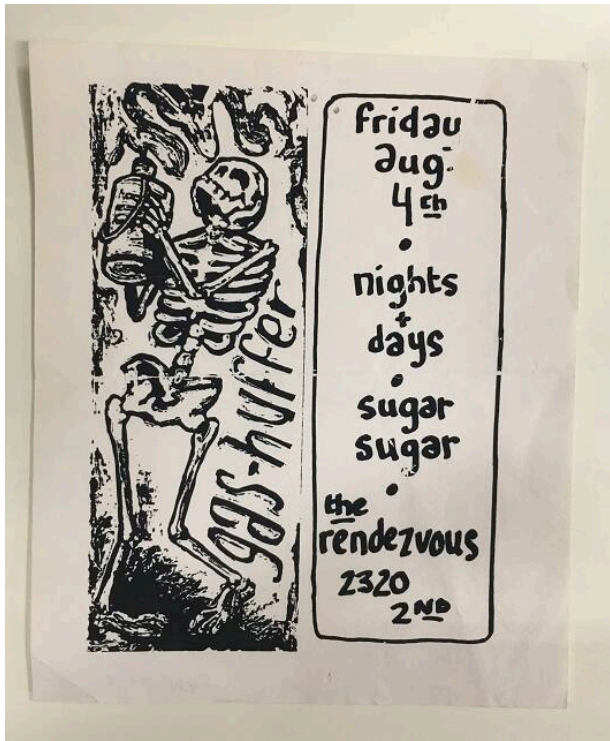 gas-huffer
friday
aug.
4th
nights
+
days
sugar
sugar
the
rendezvous
2320
2ND